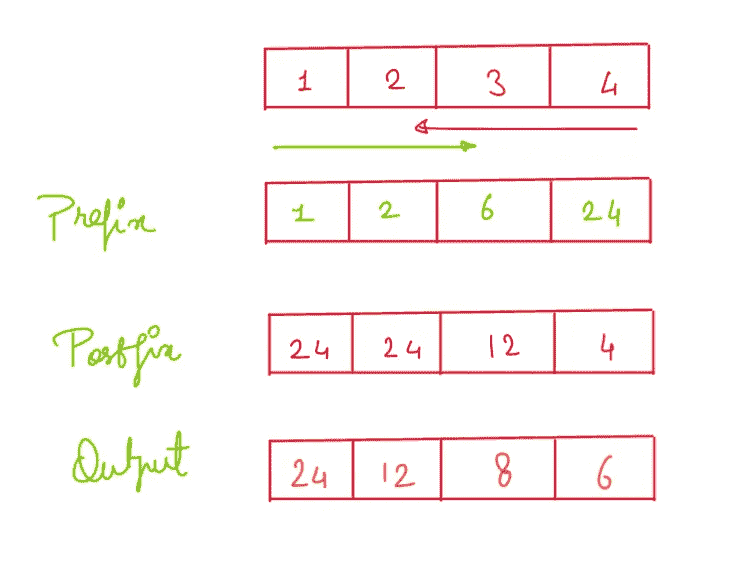 1 2 3 4
Prefix 1 2 6 24
Postfix 24 24 12 4
Output 24 12 8 6